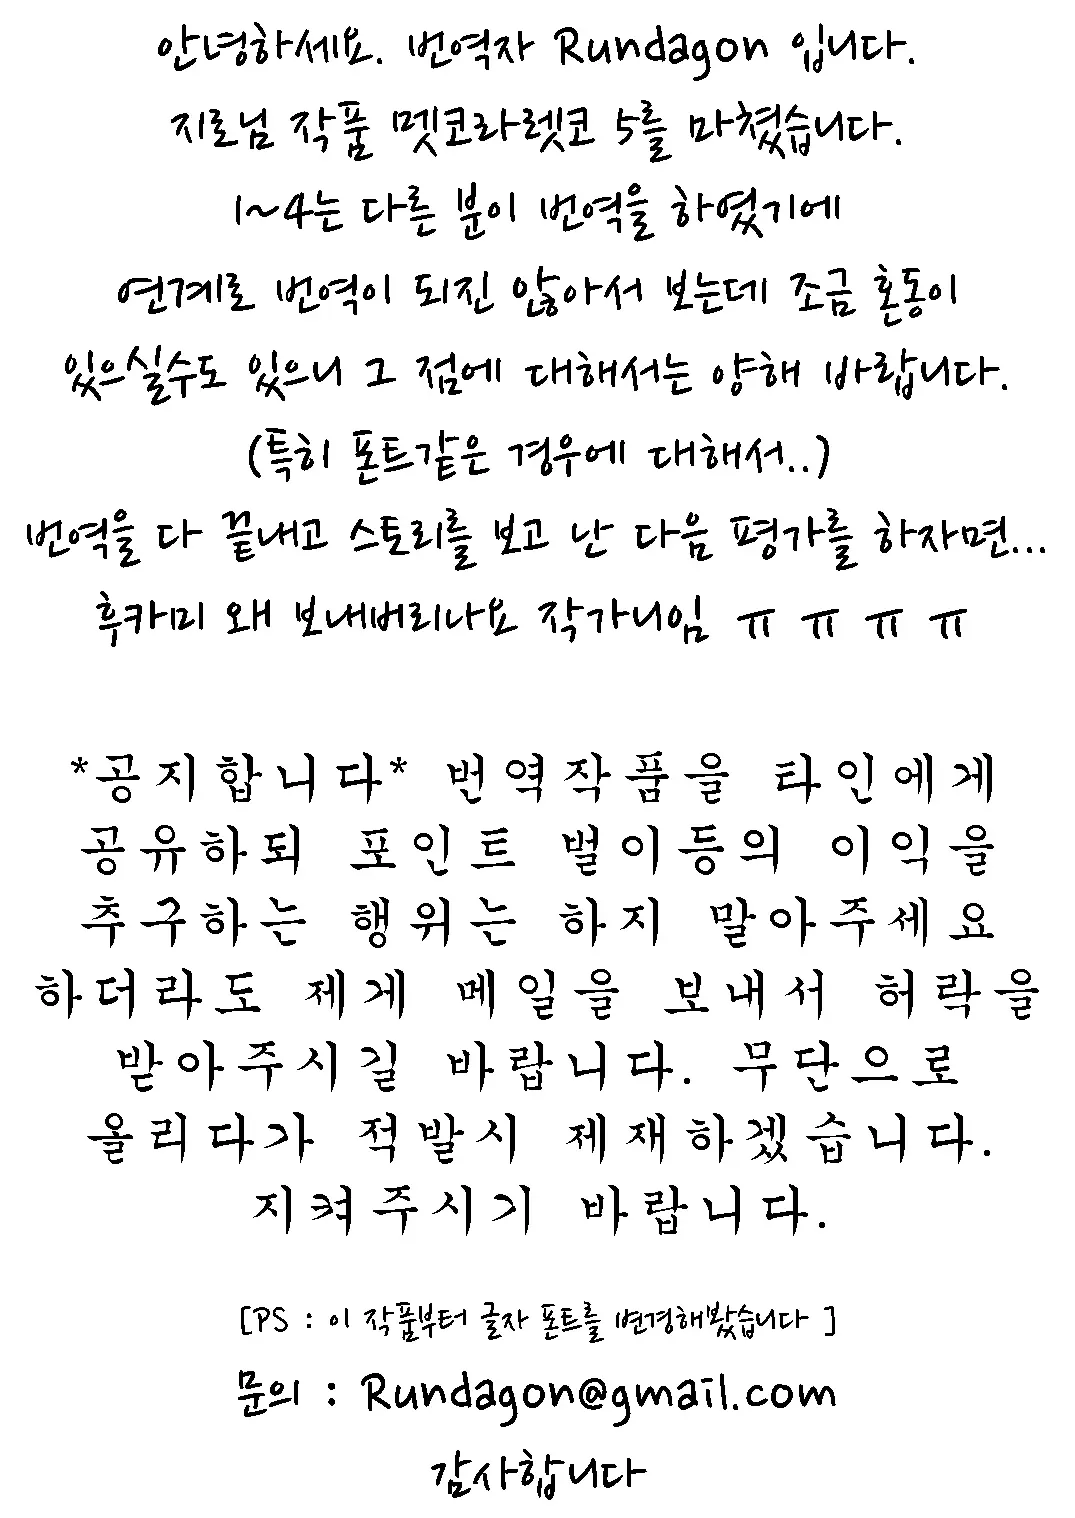 안녕하세요. 번역자 Rundagon 입니다.
지로님 작품 멧코라렛코 5를 마쳤습니다.
1~4는 다른 분이 번역을 하였기에
연계로 번역이 되진 않아서 보는데 조금 혼동이
있으실수도 있으니 그 점에 대해서는 양해 바랍니다.
(특히 폰트같은 경우에 대해서..)
번역을 다 끝내고 스토리를 보고 난 다음 평가를 하자면...
후카미 왜 보내버리나요 작가니임 ㅠ ㅠ ㅠ ㅠ
*공지합니다* 번역작품을 타인에게
공유하되 포인트 벌이등의 이익을
추구하는 행위는 하지 말아주세요
하더라도 제게 메일을 보내서 허락을
받아주시길 바랍니다. 무단으로
올리다가 적발시 제재하겠습니다.
지켜주시기 바랍니다.
[PS : 이 작품부터 글자 폰트를 변경해봤습니다 ]
문의 : Rundagon@gmail.com
감사합니다